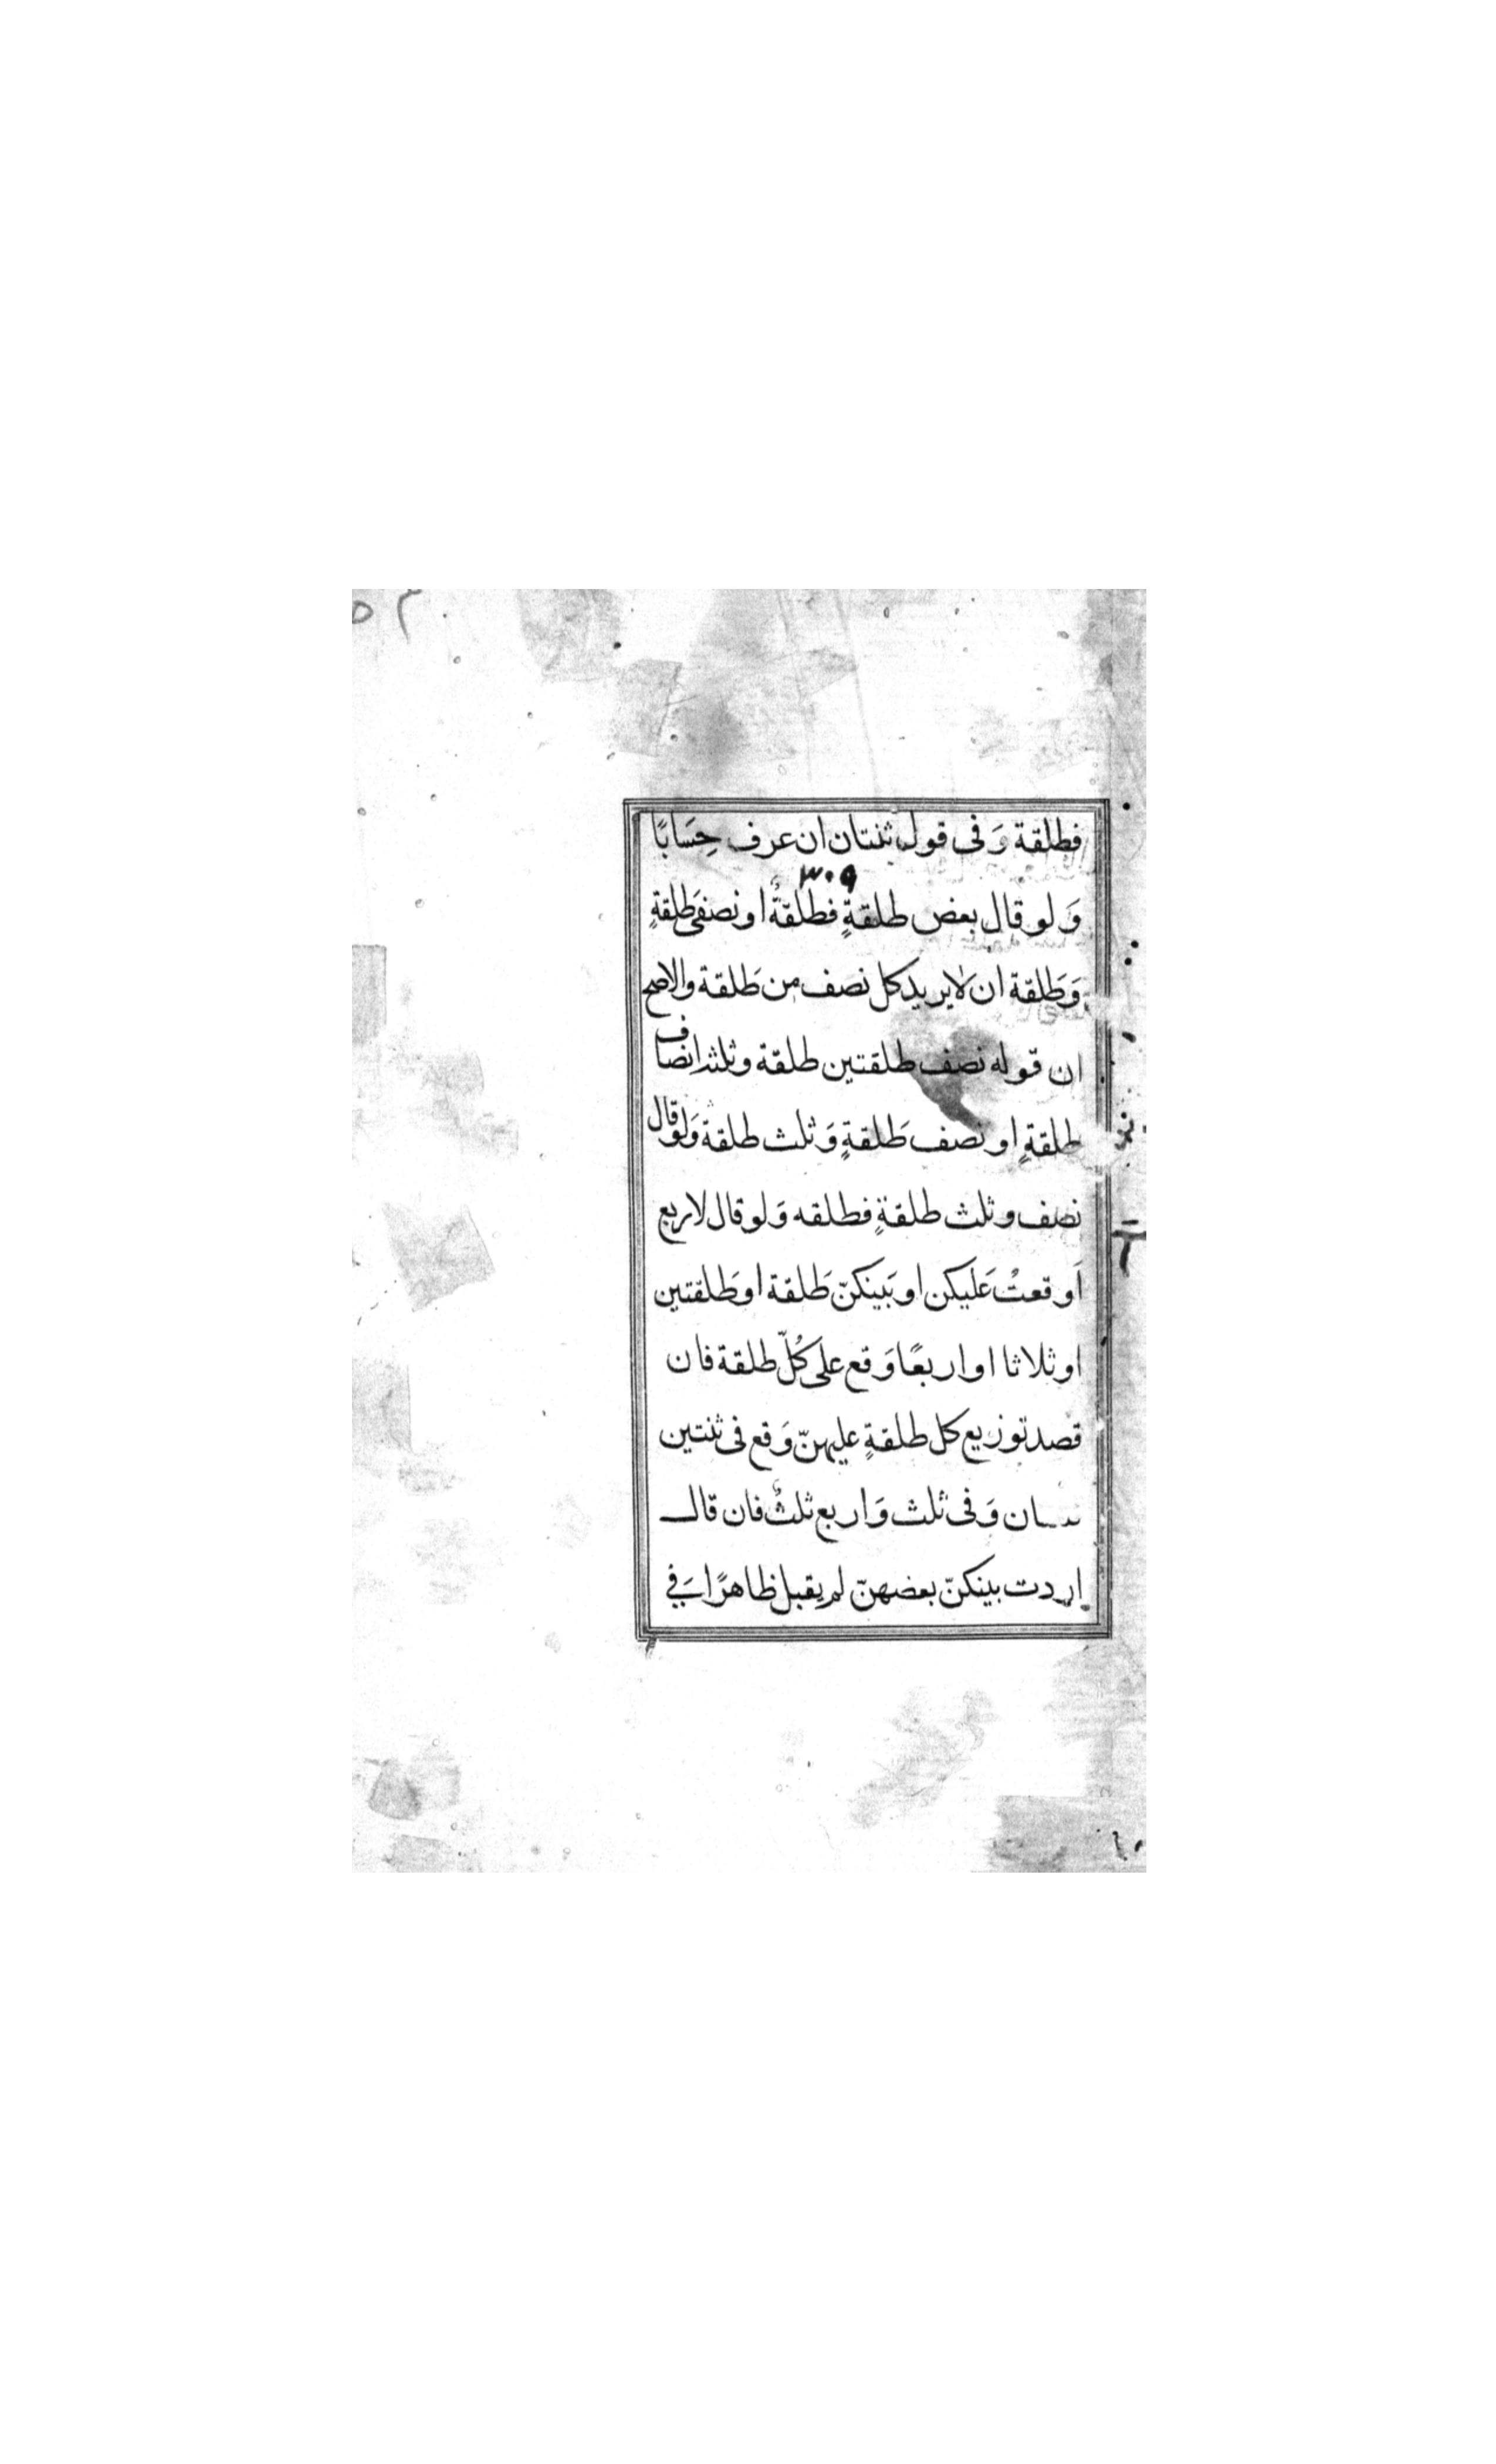 فطلقة وَفى قول ثنتان ان عرف حِسَابًا
٣٠٩
وَلو قال بعض طلقةٍ فطلقةٌ او نصفى طلقةٍ
وَطلقة ان لا يريد كل نصف من طلقة والاصح
ان قوله نصف طلقتين طلقة وثلثه انصاف
طلقةٍ او نصف طَلقةٍ وَثلث طلقة وَلو قال
نصف وثلث طلقةٍ فطلقه وَلو قال لاربع
اَوقعتُ عَليكن او بَينكنّ طَلقة او طَلقتين
او ثلاثا او اربعًا وَقع على كُلّ طلقة فان
قصد توزيع كل طلقةٍ عليهنّ وَقع فى ثنتين
ثنتان وَفى ثلث وَاربع ثلثٌ فان قال
اردت بينكنّ بعضهنّ لم يقبل ظاهرًا فى